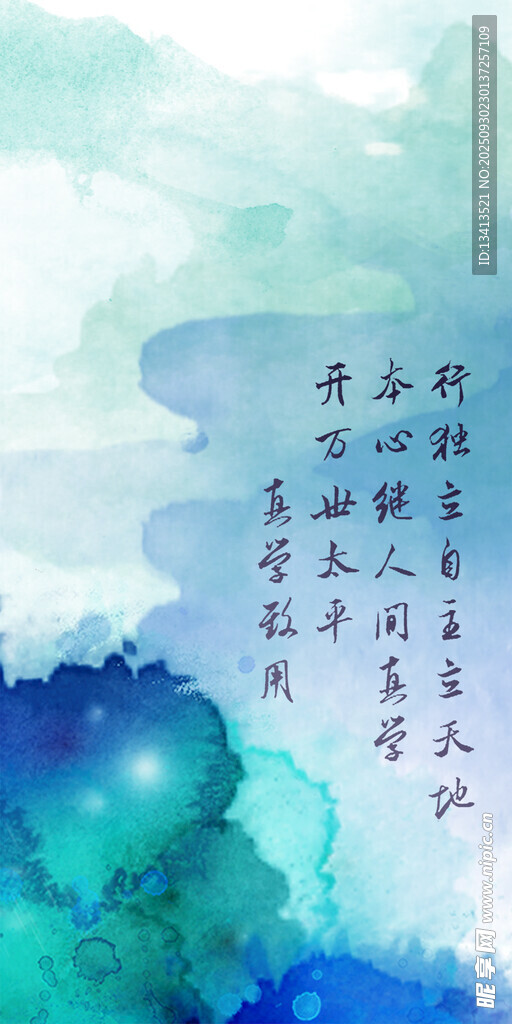 行独立自主立天地
本心继人间真学
开万世太平
真学致用
ID:13413521 NO:20250930230137257109
昵享网 www.nipic.cn